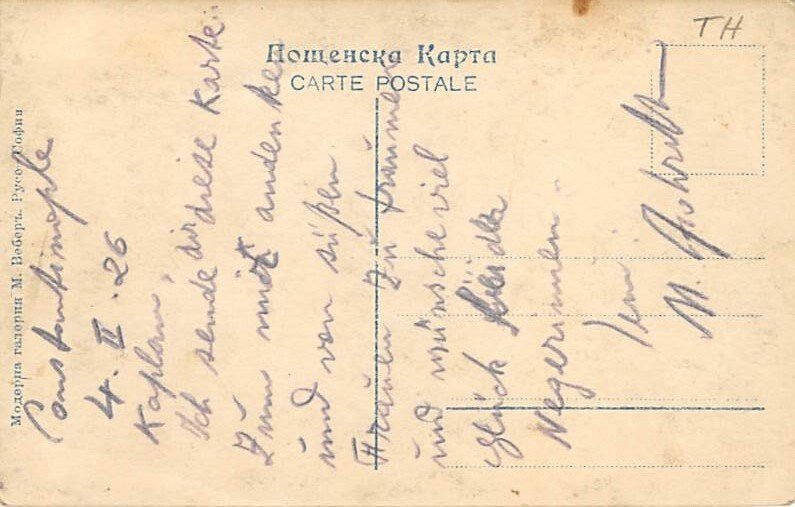 TH
Пощенска Карта
CARTE POSTALE
Модерна галерия М. Веберъ. Русе-София
Constantinople
4. II. 26
Kaplan,
Ich sende dir diese Karte
Zum andenken
und von süßen
Frauen zu träumen
und wünsche viel
glück bei der
Negerinnen.